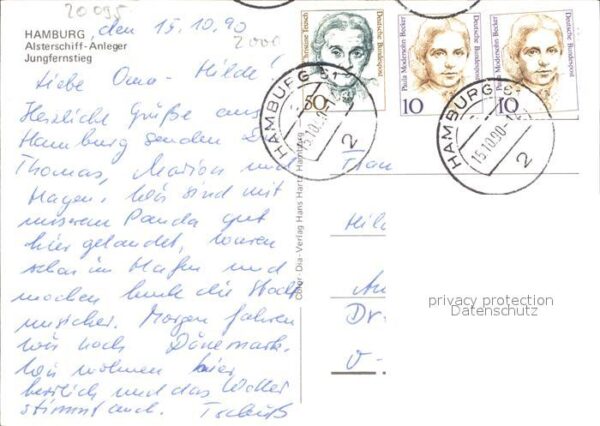 20095
HAMBURG, den 15.10.90
2000
Alsterschiff-Anleger
Jungfernstieg
Liebe Oma-Hilde!
Herzliche Grüße aus
Hamburg senden D
Thomas, Marion und
Hagen. Wir sind mit
unserem Panda gut
hier gelandet, waren
schon im Hafen und
machen heute die Stadt
unsicher. Morgen fahren
wir nach Dänemark.
Wir wohnen hier
herrlich und das Wetter
stimmt auch. Tschüß
Color-Dia-Verlag Hans Hartz Hamburg
Christine Teusch
Deutsche Bundespost
50
Paula Modersohn-Becker
Deutsche Bundespost
10
Paula Modersohn-Becker
Deutsche Bundespost
10
HAMBURG 51
15.10.90
2
HAMBURG 51
15.10.90
2
Frau
Hild
An
Dr.
O-
privacy protection
Datenschutz